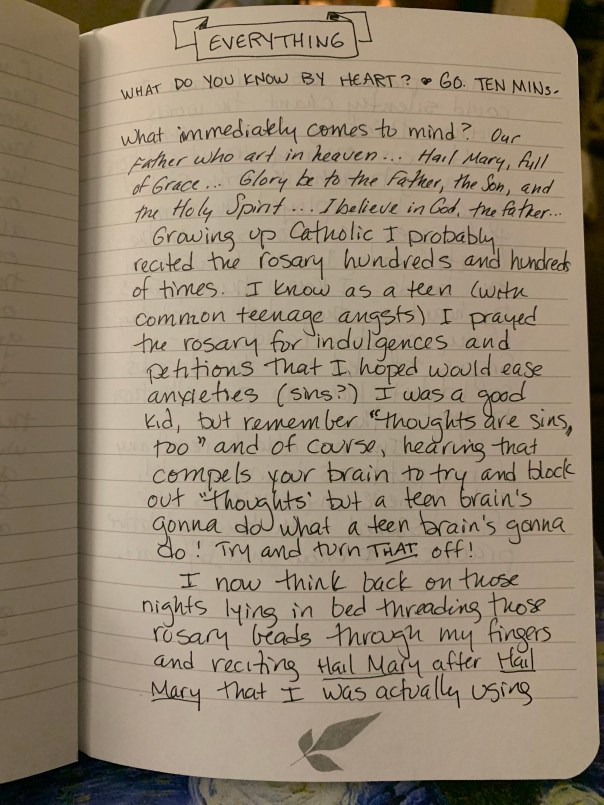 EVERYTHING
WHAT DO YOU KNOW BY HEART? • GO. TEN MINS.
What immediately comes to mind? Our
Father who art in heaven... Hail Mary, full
of Grace... Glory be to the Father, the Son, and
the Holy Spirit... I believe in God, the father...
Growing up Catholic I probably
recited the rosary hundreds and hundreds
of times. I know as a teen (with
common teenage angsts) I prayed
the rosary for indulgences and
petitions that I hoped would ease
anxieties (sins?) I was a good
kid, but remember "thoughts are sins,
too" and of course, hearing that
compels your brain to try and block
out "thoughts' but a teen brain's
gonna do what a teen brain's gonna
do! Try and turn THAT off!
I now think back on those
nights lying in bed threading those
rosary beads through my fingers
and reciting Hail Mary after Hail
Mary that I was actually using